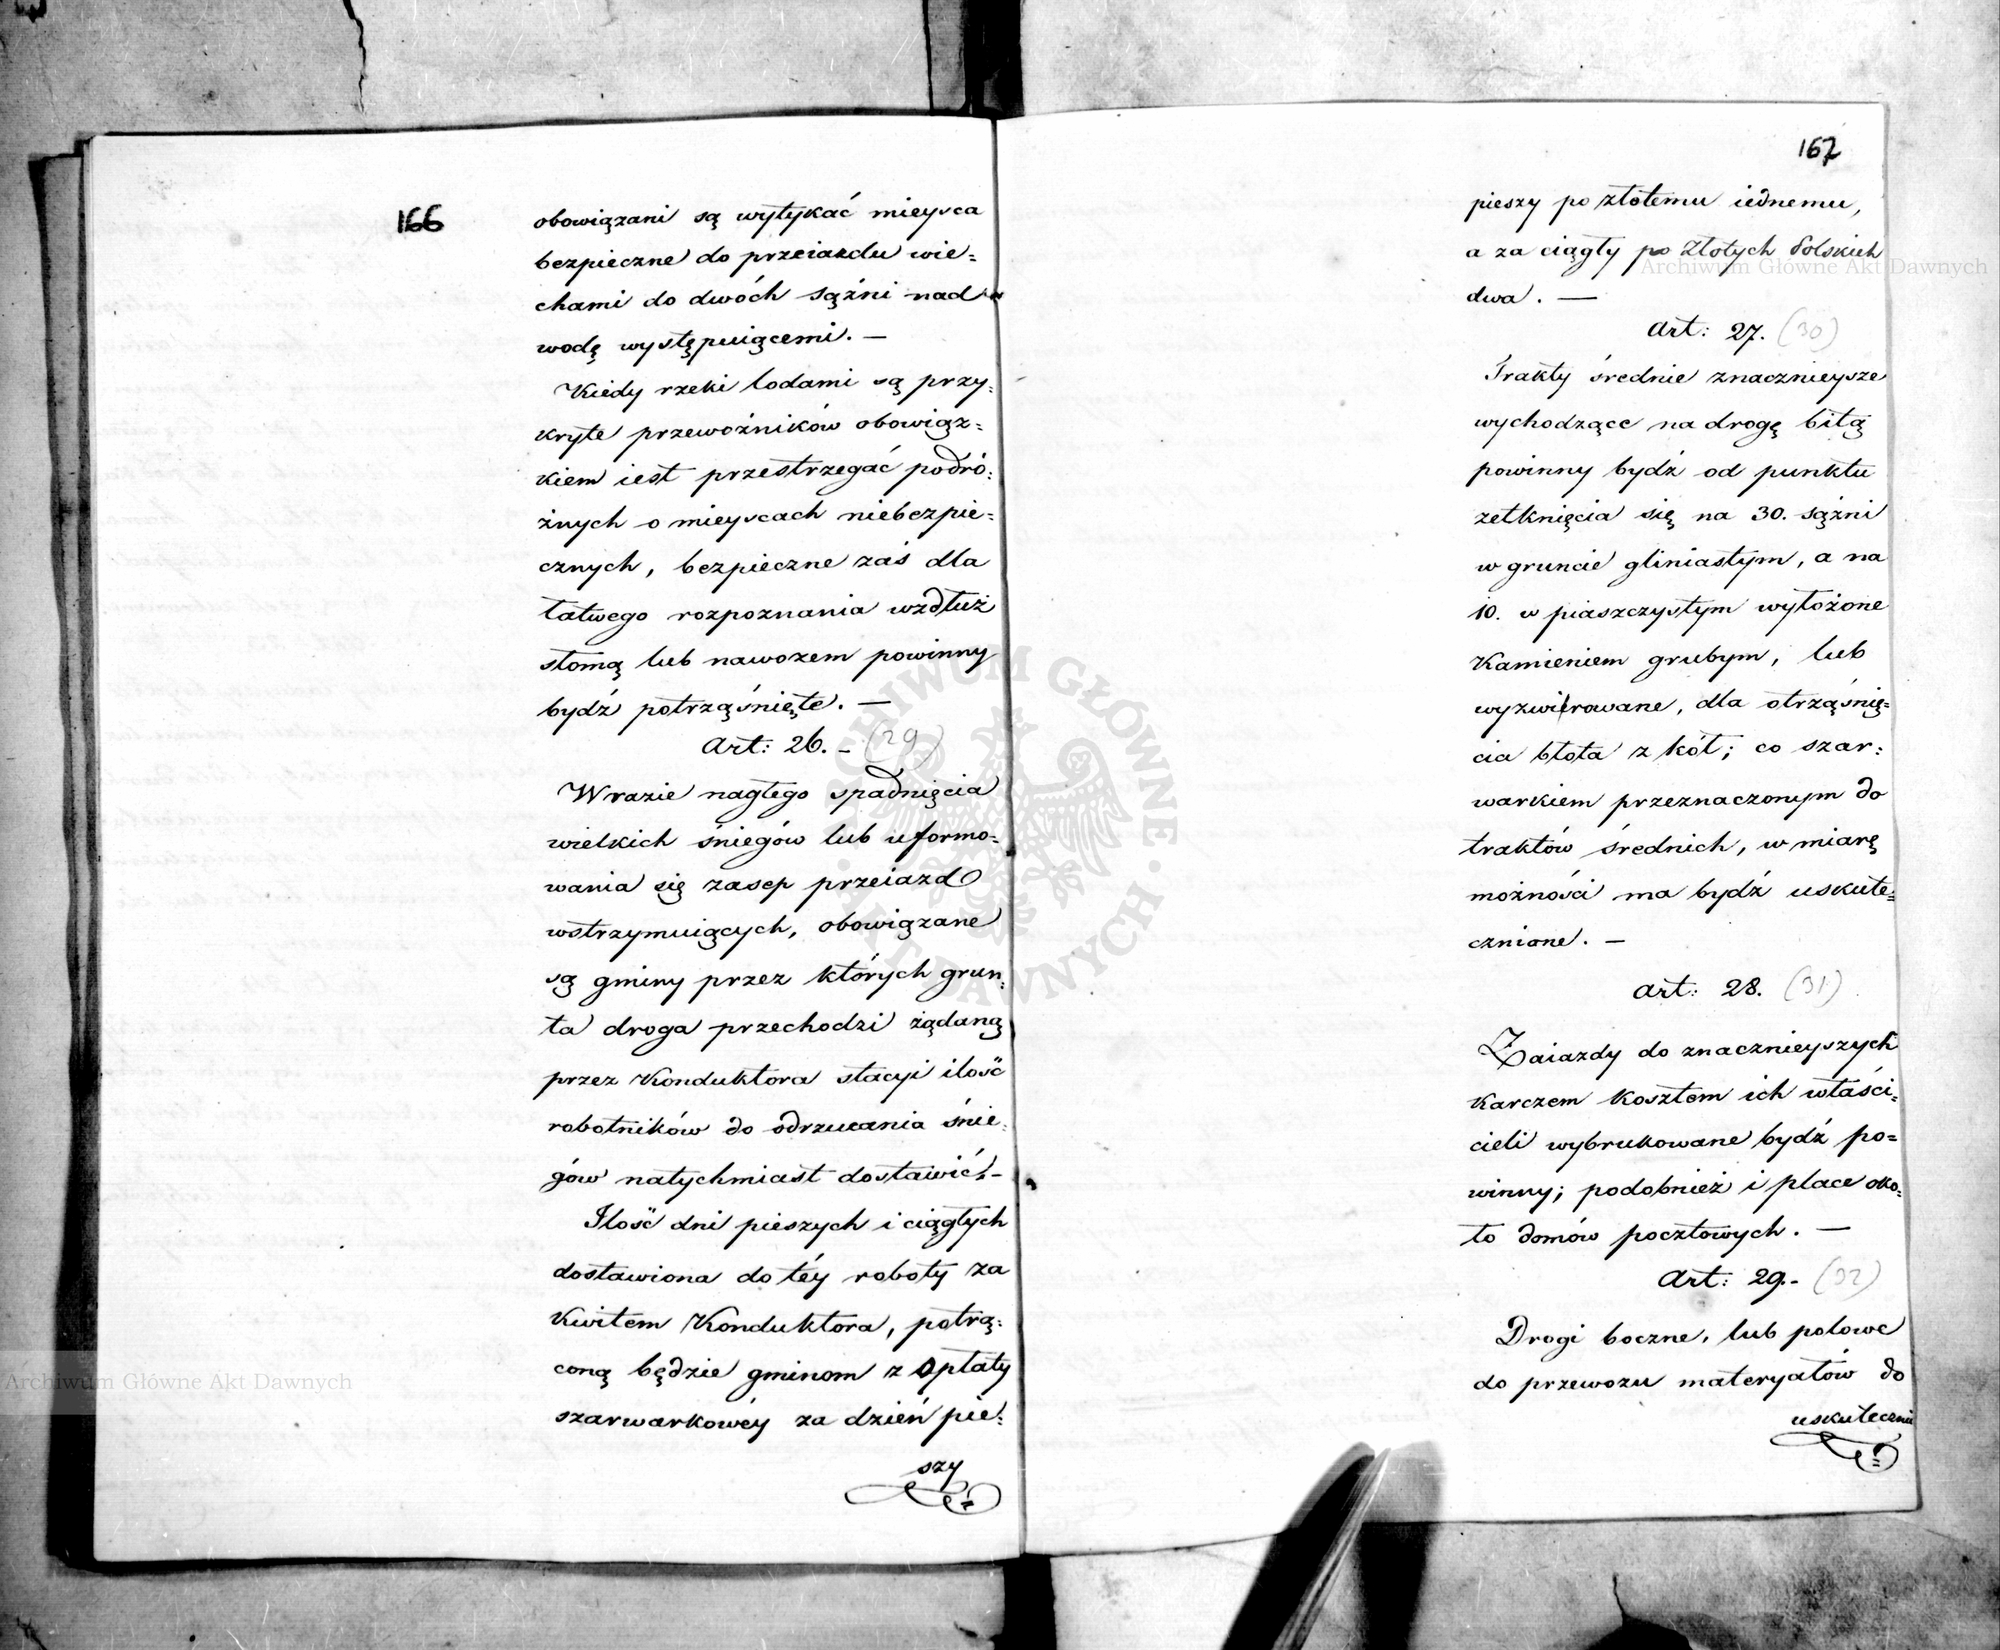 166
obowiązani są wytykać mieysca
bezpieczne do przeiazdu wie=
chami do dwóch sążni nad
wodę występuiącemi. —
Kiedy rzeki lodami są przy=
kryte przewoźników obowiąz=
kiem iest przestrzegać podró=
żnych o mieyscach niebezpie=
cznych, bezpieczne zaś dla
łatwego rozpoznania wzdłuż
słomą lub nawozem powinny
bydź potrząśnięte. —
Art: 26. – (29)
W razie nagłego spadnięcia
wielkich śniegów lub uformo=
wania się zasep przeiazd
wstrzymuiących, obowiązane
są gminy przez których grun=
ta droga przechodzi żądaną
przez Konduktora stacyi ilość
robotników do odrzucania śnie=
gów natychmiast dostawić. –
Ilość dni pieszych i ciągłych
dostawiona do téy roboty za
Kwitem Konduktora, potrą=
coną będzie gminom z Opłaty
szarwarkowéy za dzień pie=
szy
167
pieszy po złotemu iednemu,
a za ciągły po Złotych Polskich
dwa. —
Art: 27. (30)
Trakty średnie znacznieysze
wychodzące na drogę bitą
powinny bydź od punktu
zetknięcia się na 30. sążni
w gruncie gliniastym, a na
10. w piaszczystym wyłożone
Kamieniem grubym, lub
wyzwirowane, dla otrząśnię=
cia błota z kół; co szar=
warkiem przeznaczonym do
traktów średnich, w miarę
możności ma bydź uskute=
cznione. —
Art: 28. (31)
Zaiazdy do znacznieyszych
Karczem kosztem ich właści=
cieli wybrukowane bydź po=
winny; podobnież i place oko=
ło domów pocztowych. —
Art: 29. – (32)
Drogi boczne, lub polowe
do przewozu materyałów do
uskuteczni
Archiwum Główne Akt Dawnych
Archiwum Główne Akt Dawnych
ARCHIWUM GŁÓWNE · AKT DAWNYCH ·